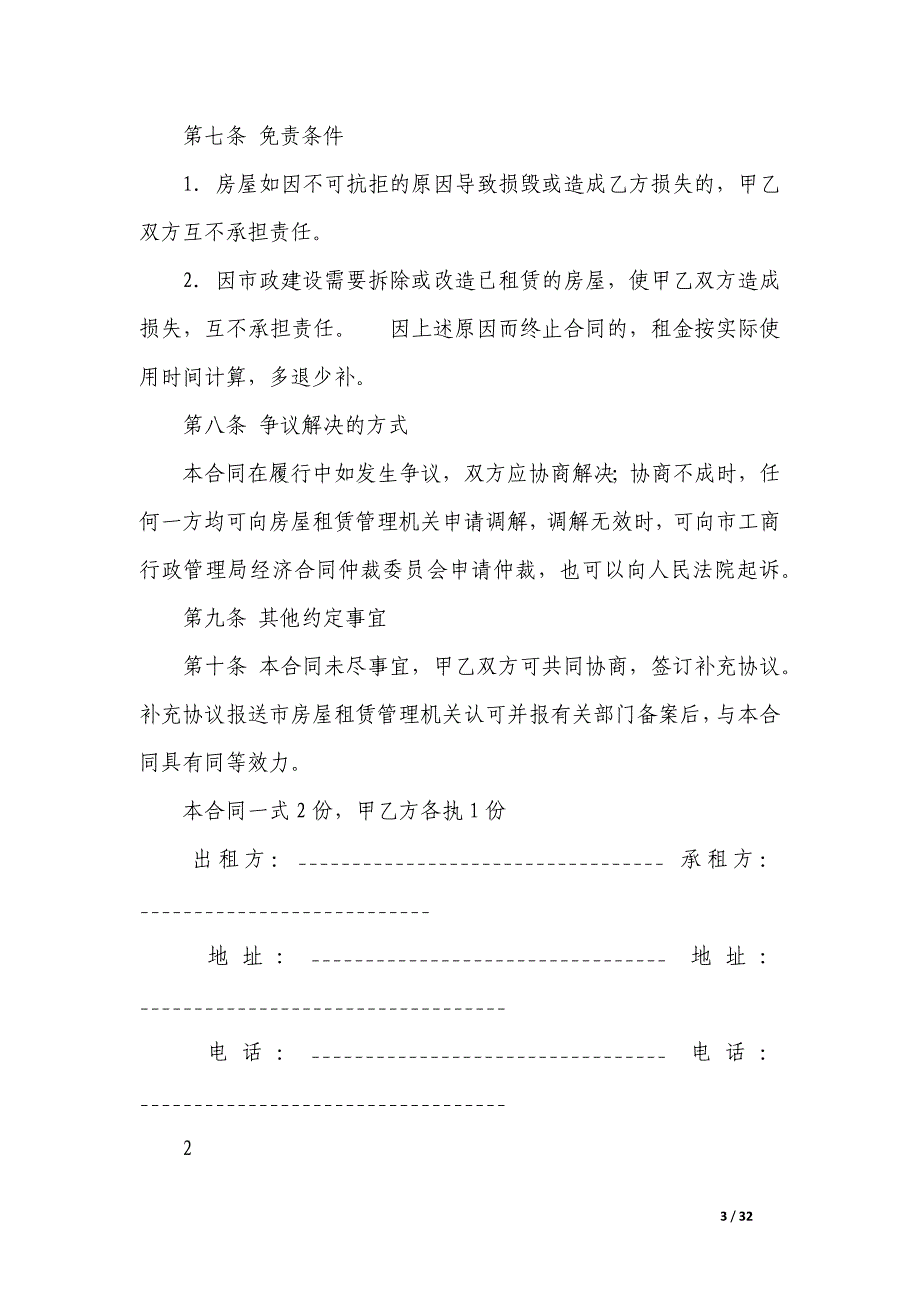 第七条 免责条件
1. 房屋如因不可抗拒的原因导致损毁或造成乙方损失的，甲乙
双方互不承担责任。
2. 因市政建设需要拆除或改造已租赁的房屋，使甲乙双方造成
损失，互不承担责任。 因上述原因而终止合同的，租金按实际使
用时间计算，多退少补。
第八条 争议解决的方式
本合同在履行中如发生争议，双方应协商解决；协商不成时，任
何一方均可向房屋租赁管理机关申请调解，调解无效时，可向市工商
行政管理局经济合同仲裁委员会申请仲裁，也可以向人民法院起诉。
第九条 其他约定事宜
第十条 本合同未尽事宜，甲乙双方可共同协商，签订补充协议。
补充协议报送市房屋租赁管理机关认可并报有关部门备案后，与本合
同具有同等效力。
本合同一式2份，甲乙方各执1份
出租方：__________________________________ 承租方：
___________________________
地址：_________________________________ 地址：
__________________________________
电话：_________________________________ 电话：
__________________________________
2
3 / 32